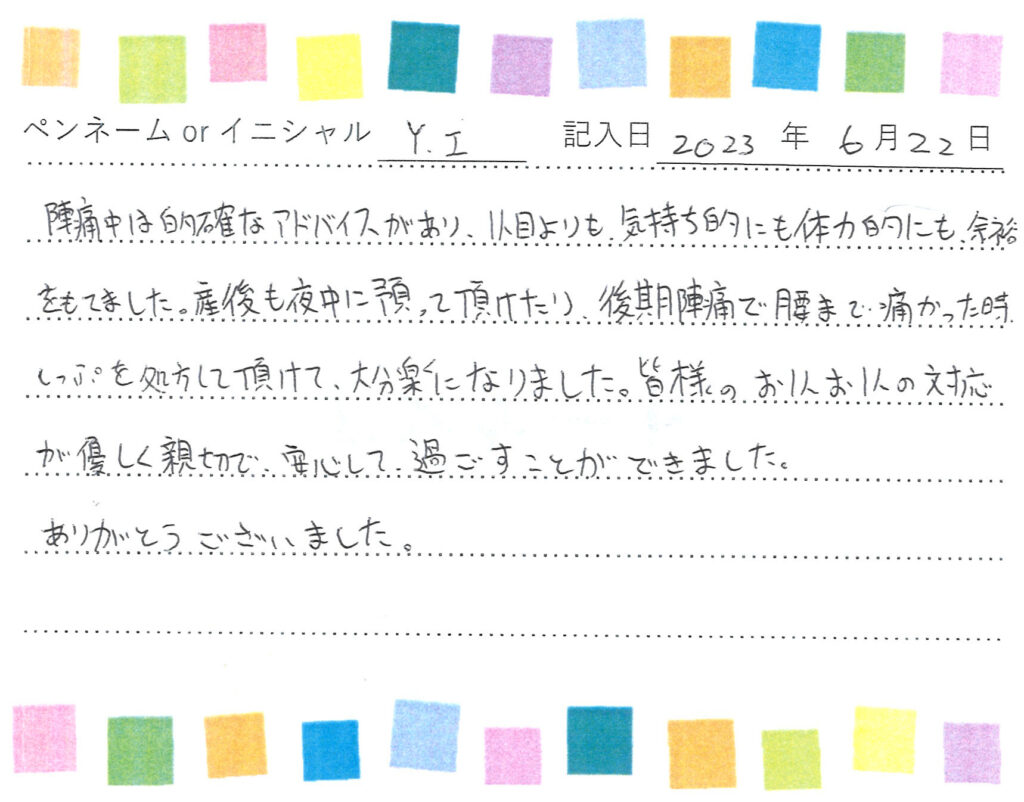 ペンネーム or イニシャル Y.I 記入日 2023 年 6 月 22 日
陣痛中は的確なアドバイスがあり、1人目よりも、気持ち的にも体力的にも、余裕
をもてました。産後も夜中に預って頂けたり、後期陣痛で腰まで痛かった時
しっぷを処方して頂けて、大分楽になりました。皆様のお1人お1人の対応
が優しく親切で、安心して、過ごすことができました。
ありがとうございました。